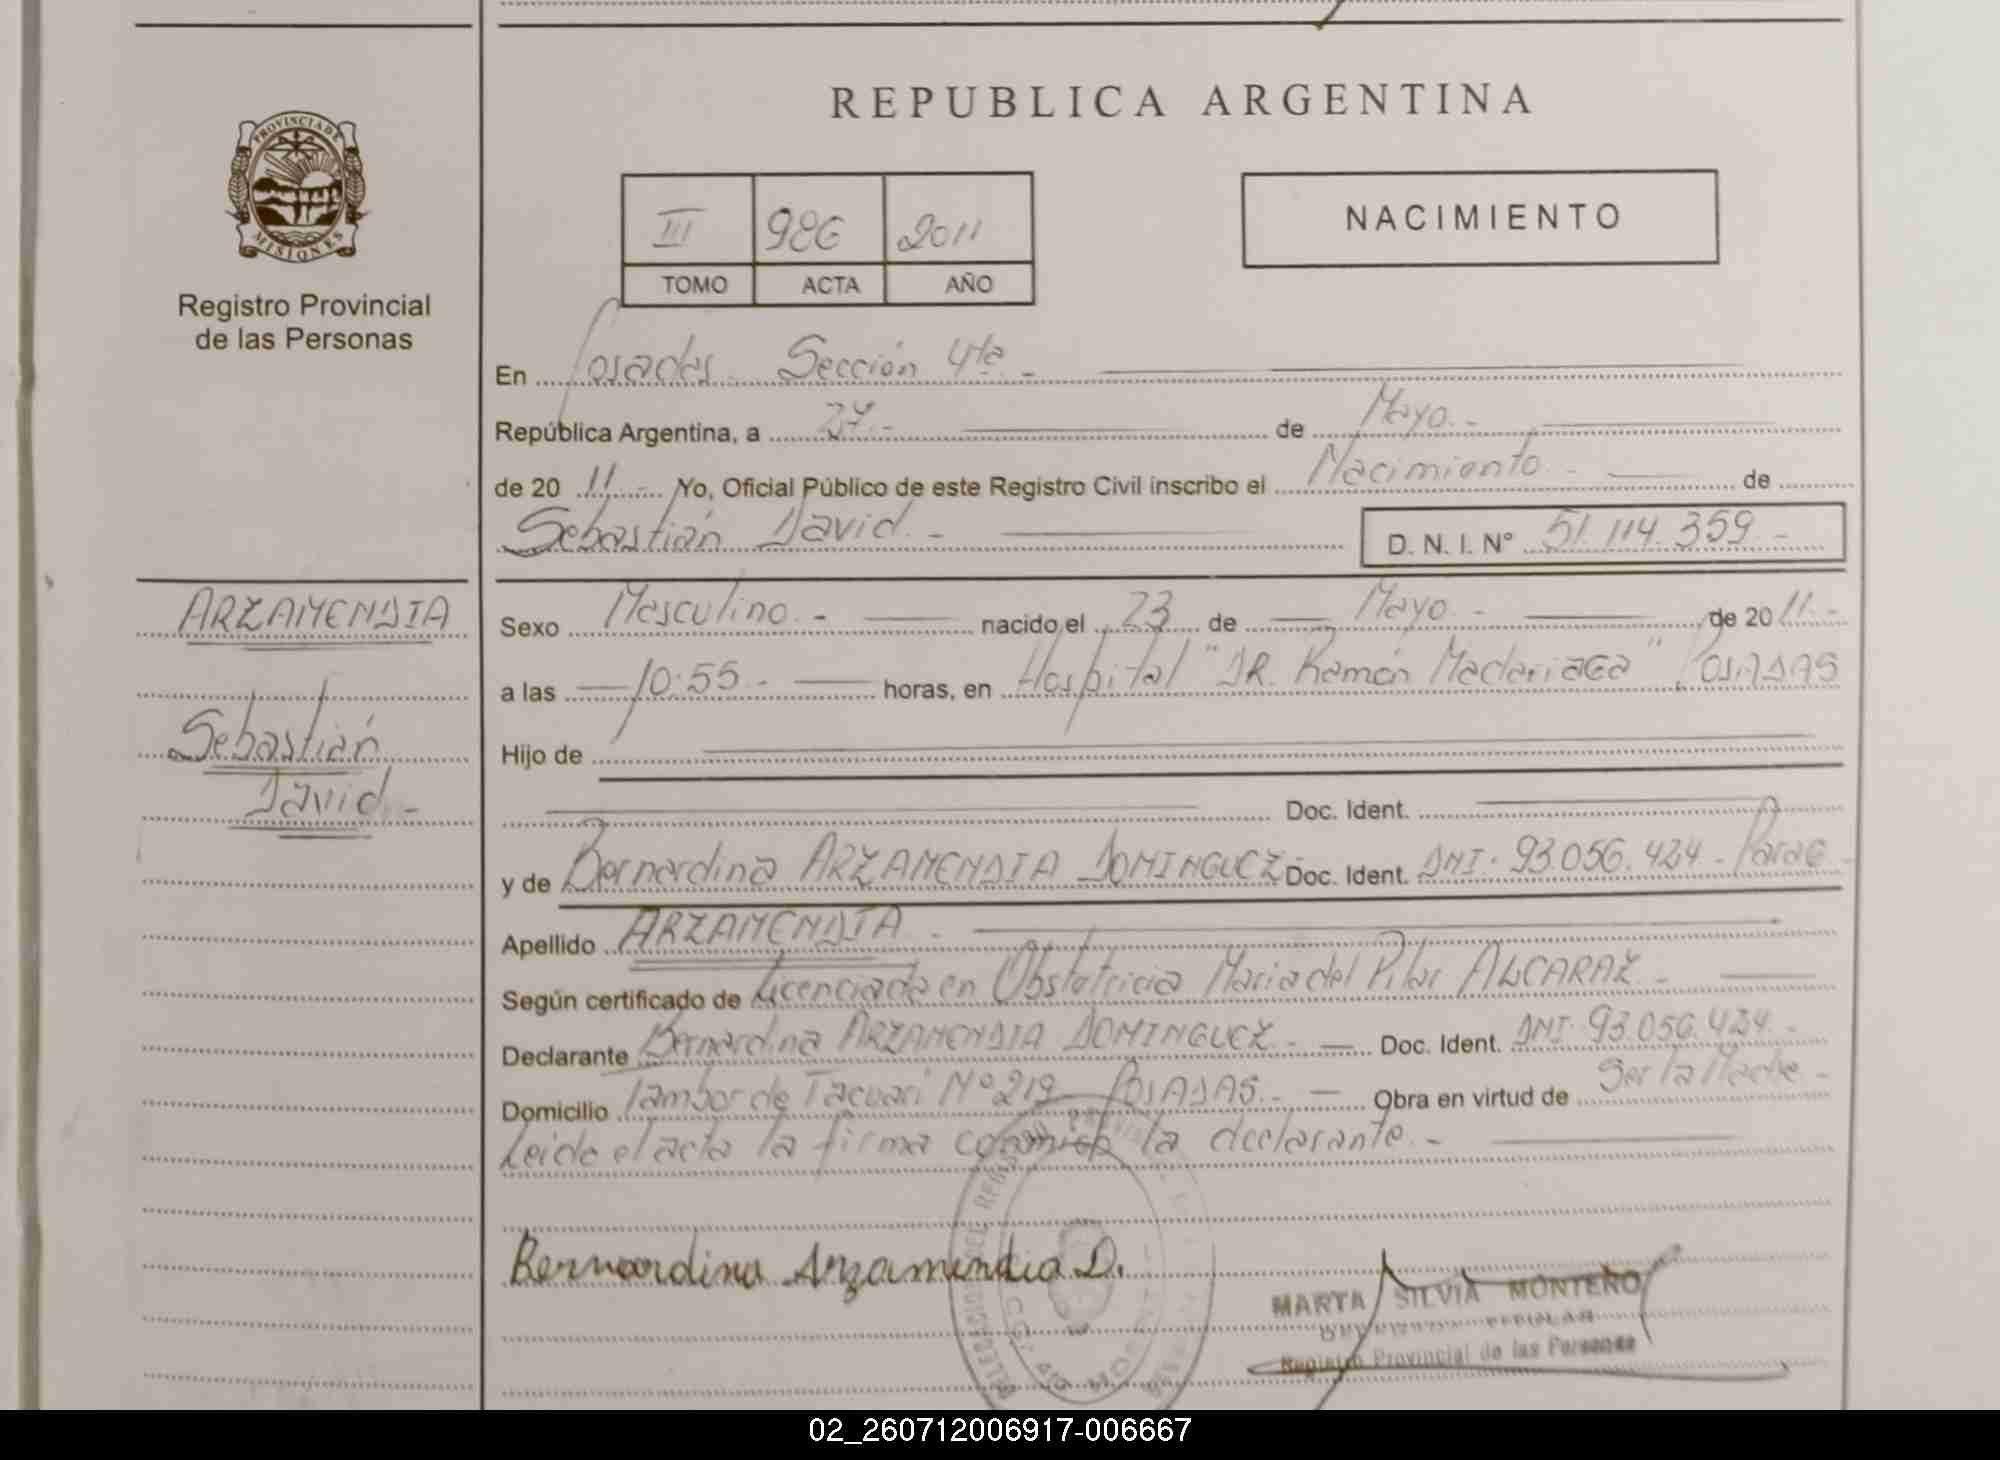 REPUBLICA ARGENTINA
PROVINCIA DE
MISIONES
Registro Provincial
de las Personas
III 986 2011
TOMO ACTA AÑO
NACIMIENTO
En Posadas Sección 4ta. -
República Argentina, a 27.- de Mayo. -
de 20 11.- Yo, Oficial Público de este Registro Civil inscribo el Nacimiento - de
Sebastián David. - D. N. I. N° 51.114.359 -
ARZAMENDIA
Sebastián
David. -
Sexo Masculino. - nacido el 23 de Mayo. - de 20 11. -
a las 10:55. - horas, en Hospital "DR. Ramón Madariaga" POSADAS
Hijo de
Doc. Ident.
y de Bernardina ARZAMENDIA DOMINGUEZ Doc. Ident. DNI. 93.056.424 - Parag.
Apellido ARZAMENDIA. -
Según certificado de Licenciada en Obstetricia Maria del Pilar ALCARAZ. -
Declarante Bernardina ARZAMENDIA DOMINGUEZ. - Doc. Ident. DNI. 93.056.424. -
Domicilio Tambor de Tacuari N° 219 POSADAS. - Obra en virtud de Ser la Madre -
Leida el acta la firma conmigo la declarante. -
Bernardina Arzamendia D.
MARTA SILVIA MONTEÑO
Registro Provincial de las Personas
02_260712006917-006667